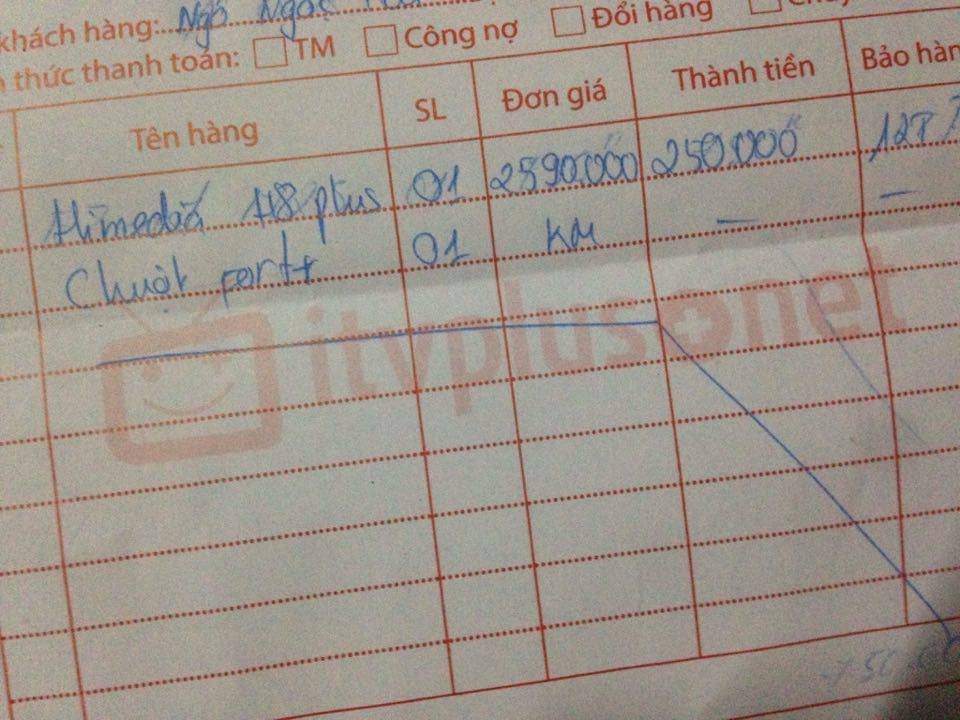 khách hàng: Ngô Ngọc
thức thanh toán: TM Công nợ Đổi hàng
Tên hàng SL Đơn giá Thành tiền Bảo hàn
Himedia H8 plus 01 2590.000 250.000 12T
Chuột 01 KM - -
itvplus.net